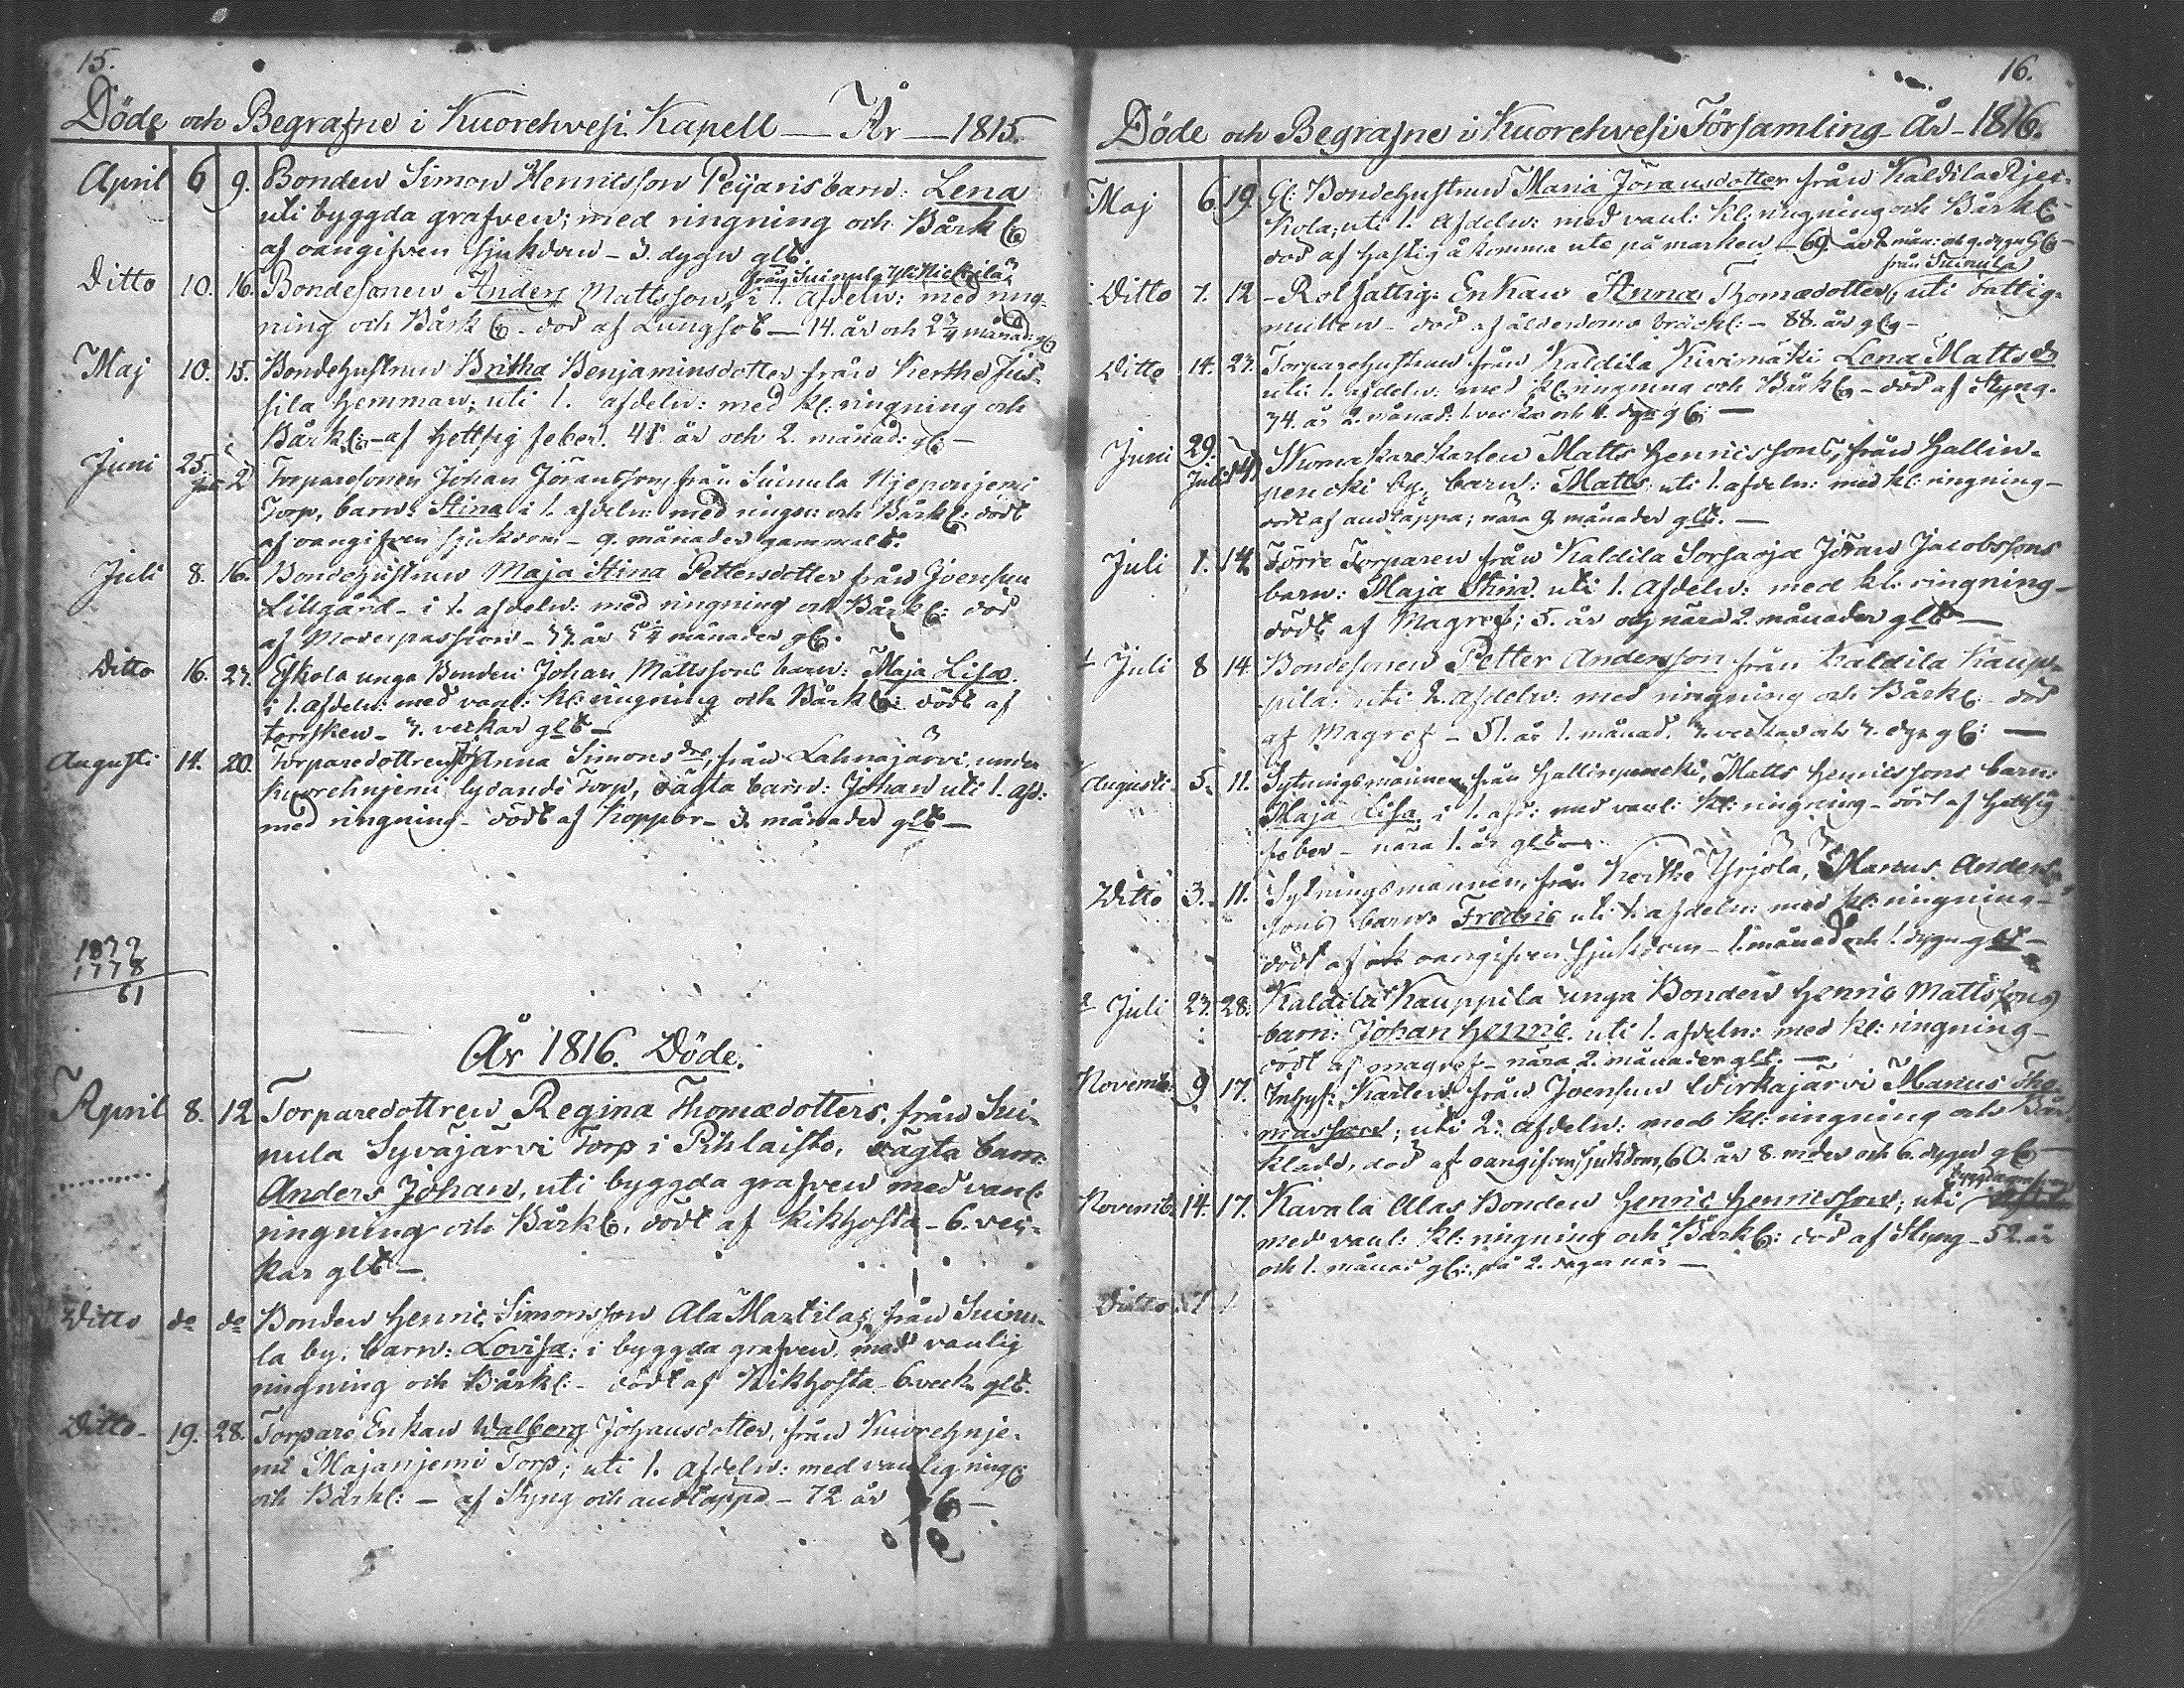 15.
Döde och Begrafne i Kuorehvesi Kapell — År — 1815.
April 6 9. Bonden Simon Henricsson Peijaris barn: Lena
uti byggda grafven; med ringning och Bårkl:
af oangifven sjukdom - 3. dygn glt.
från Suinula
Ditto 10. 16. Bondesonen Anders Mattsson, i 1. afdeln: med ring-
ning och Bårkl: död af Lungsot — 14. år och 2 3/4 månad: gl:
Maj 10. 15. Bondehustrun Britha Benjaminsdotter från Kerthe Jus-
sila hemman; uti 1. afdeln: med kl: ringning och
Bårkl: - af hettsig feber. 41. år och 2. månad: gl: -
Juni 25. Juli 2 Torparesonen Johan Göransons från Suinula
Torp, barn: Stina i 1. afdeln: med ringn: och Bårkl: dödt
af oangifven sjukdom - 9. månader gammalt.
Juli 8. 16. Bondehustrun Maja Stina Pettersdotter från Joensuu
Lillgård - i 1. afdeln: med ringning och Bårkl: död
af Moderpassion - 37. år månader gl:
Ditto 16. 23. Eskola unga Bonden Johan Mattssons barn: Maja Lisa
i 1. afdeln: med vanl: kl: ringning och Bårkl: dödt af
torsken - 3. veckor glt -
Augusti 14. 20. Torparedottren Anna Simonsdrs, från Lahnajärvi, under
Kuorehnjemi lydande Torp, oägta barn: Johan uti 1. afd:
med ringning - dödt af Koppor - 3. månader glt -
1839
1778
61
År 1816. Döde.
April 8. 12 Torparedottren Regina Thomædotters, från Sui-
nula Syväjärvi Torp i Pihlaisto, oägta barn:
Anders Johan, uti byggda grafven med vanl:
ringning och Bårkl: dödt af kikhosta - 6. vec-
kor glt -
Ditto do do Bonden Henric Simonsson Ala Martilas, från Suinu-
la by, barn: Lovisa; i byggda grafven, med vanlig
ringning och Bårkl: - dödt af Kikhosta - 6. veck: glt.
Ditto - 19. 28. Torpare Enkan Walborg Johansdotter, från Kuorehnje-
mi Majanjemi Torp; uti 1. afdeln: med vanlig ring:
och Bårkl: - af Styng och andtäppa - 72 år gl: -
16.
Döde och Begrafne i Kuorehvesi Församling År - 1816.
Maj 6 19. Gl: Bondehustrun Maria Göransdotter från Kaldila Rjei-
kola; uti 1. afdeln: med vanl: kl: ringning och Bårkl:
död af hastig åkomma ute på marken - 69. år 2 mån: och 9. dygn gl: -
från Suinula
Ditto 7. 12 - Rotfattig: Enkan Anna Thomædotter, uti fattig-
mullen - död af ålderdoms bräckl: - 88. år glg -
Ditto 14. 23. Torparehustrun från Kaldila Kivimäki Lena Mattsdr
uti 1. afdeln: med kl: ringning och Bårkl: - död af Styng.
74. år 2. månad: 1. vecka och 4. dygn gl: —
Juni 29. Juli 14 Skomakarekarlen Matts Henricssons, från Hallin-
pencki by, barn: Matts uti 1. afdeln: med kl: ringning -
dödt af andtäppa; nära 9. månader glt. —
Juli 1. 14. Förre Torparen från Kaldila Sorsaoja Göran Jacobssons
barn: Maja Stina uti 1. afdeln: med kl: ringning -
dödt af Magref; 5. år och nära 2. månader glt —
Juli 8 14. Bondesonen Petter Andersson från Kaldila Kaup-
pila: uti 2. afdeln: med ringning och Bårkl: - död
af Magref - 51. år 1. månad. 3. veckor och 3. dyg: gl: —
Augusti 5. 11. Sytningsmannen från Hallinpencki, Matts Henricssons barn:
Maja Lisa i 1. afd: med vanl: kl: ringning - dödt af hettsig
feber - nära 1. år glt —
Ditto 3. 11. Sytningsmannen, från Kerthe Yrjölä, Marcus Anders-
sons barn: Fredric uti 1. afdeln: med kl: ringning -
dödt af oangifven sjukdom - 1. månad och 1. dygn glt -
Juli 23. 28. Kaldila Kauppila unga Bonden Henric Mattssons
barn: Johan Henric uti 1. afdeln: med kl: ringning -
dödt af magref - nära 2. månader glt. —
Novemb: 9 17. Inhys: Karlen från Joensuu Wirkajärvi Marcus Tho-
masson; uti 2: afdeln: med kl: ringning och Bår-
kläde, död af oangifven sjukdom, 60. år 8. mder och 6. dygn gl: -
Novemb: 14. 17. Kavala Alas Bonden Henric Henricsson; uti
med vanl: kl: ringning och Bårkl: död af Styng - 52. år
och 1. månad gl: på 2. dagar när —
Ditto